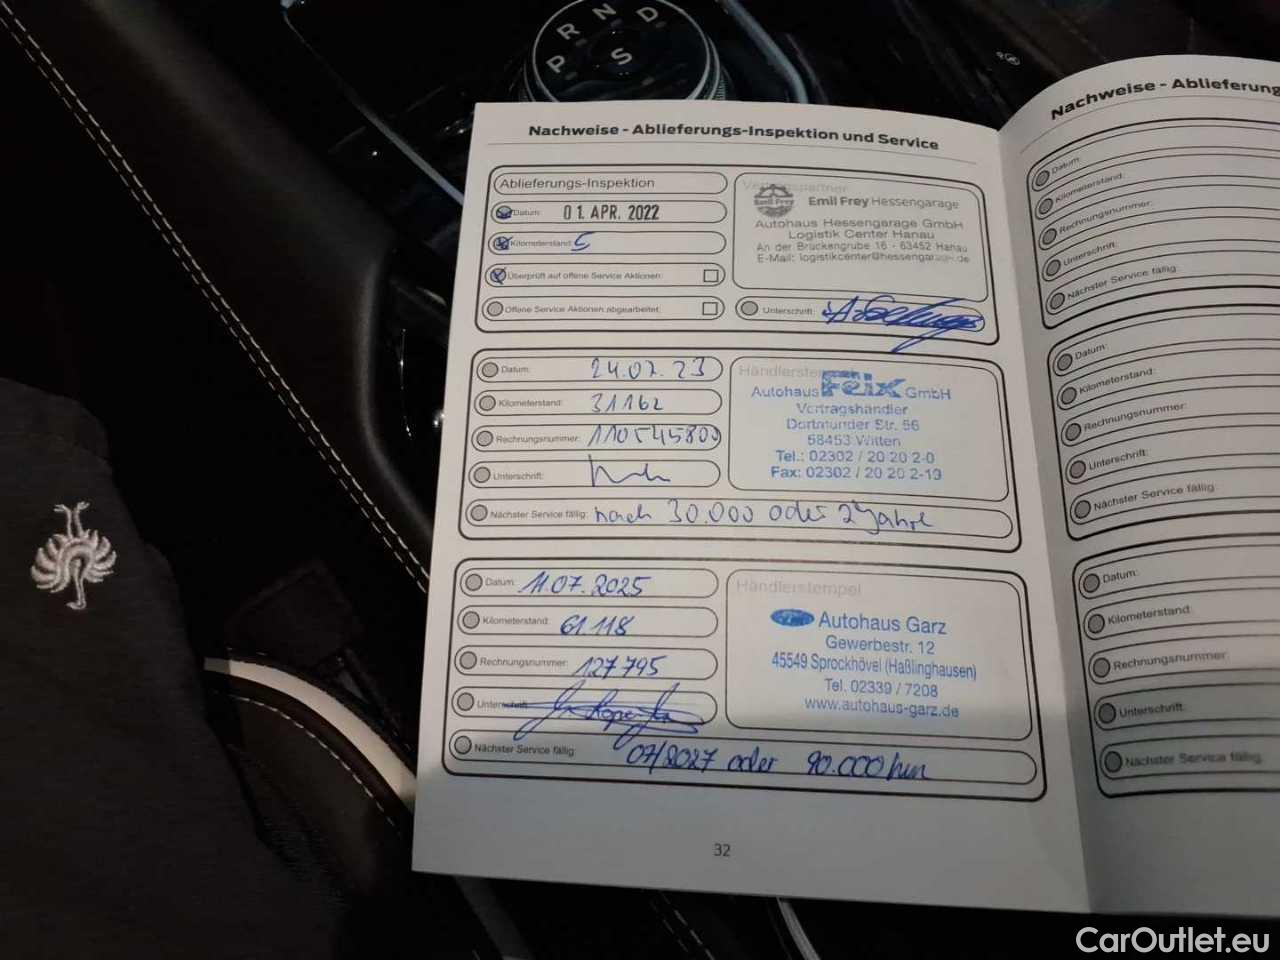 P R N D
S
Nachweise - Ablieferungs-Inspektion und Service
Ablieferungs-Inspektion
Datum: 01. APR. 2022
Kilometerstand: 5
Überprüft auf offene Service Aktionen:
Offene Service Aktionen abgearbeitet:
Vertragspartner
Emil Frey Emil Frey Hessengarage
Autohaus Hessengarage GmbH
Logistik Center Hanau
An der Brückengrube 16 - 63452 Hanau
E-Mail: logistikcenter@hessengarage.de
Unterschrift:
Datum: 24.07.23
Kilometerstand: 31162
Rechnungsnummer: 110545800
Unterschrift:
Nächster Service fällig: nach 30.000 oder 2 Jahre
Händlerstempel
Autohaus Feix GmbH
Vertragshändler
Dortmunder Str. 56
58453 Witten
Tel.: 02302 / 20 20 2-0
Fax: 02302 / 20 20 2-13
Datum: 11.07.2025
Kilometerstand: 61.118
Rechnungsnummer: 127795
Unterschrift:
Nächster Service fällig: 07/2027 oder 90.000 km
Händlerstempel
Ford Autohaus Garz
Gewerbestr. 12
45549 Sprockhövel (Haßlinghausen)
Tel. 02339 / 7208
www.autohaus-garz.de
32
Nachweise - Ablieferung
Datum:
Kilometerstand:
Rechnungsnummer:
Unterschrift:
Nächster Service fällig:
Datum:
Kilometerstand:
Rechnungsnummer:
Unterschrift:
Nächster Service fällig:
Datum:
Kilometerstand:
Rechnungsnummer:
Unterschrift:
Nächster Service fällig:
CarOutlet.eu